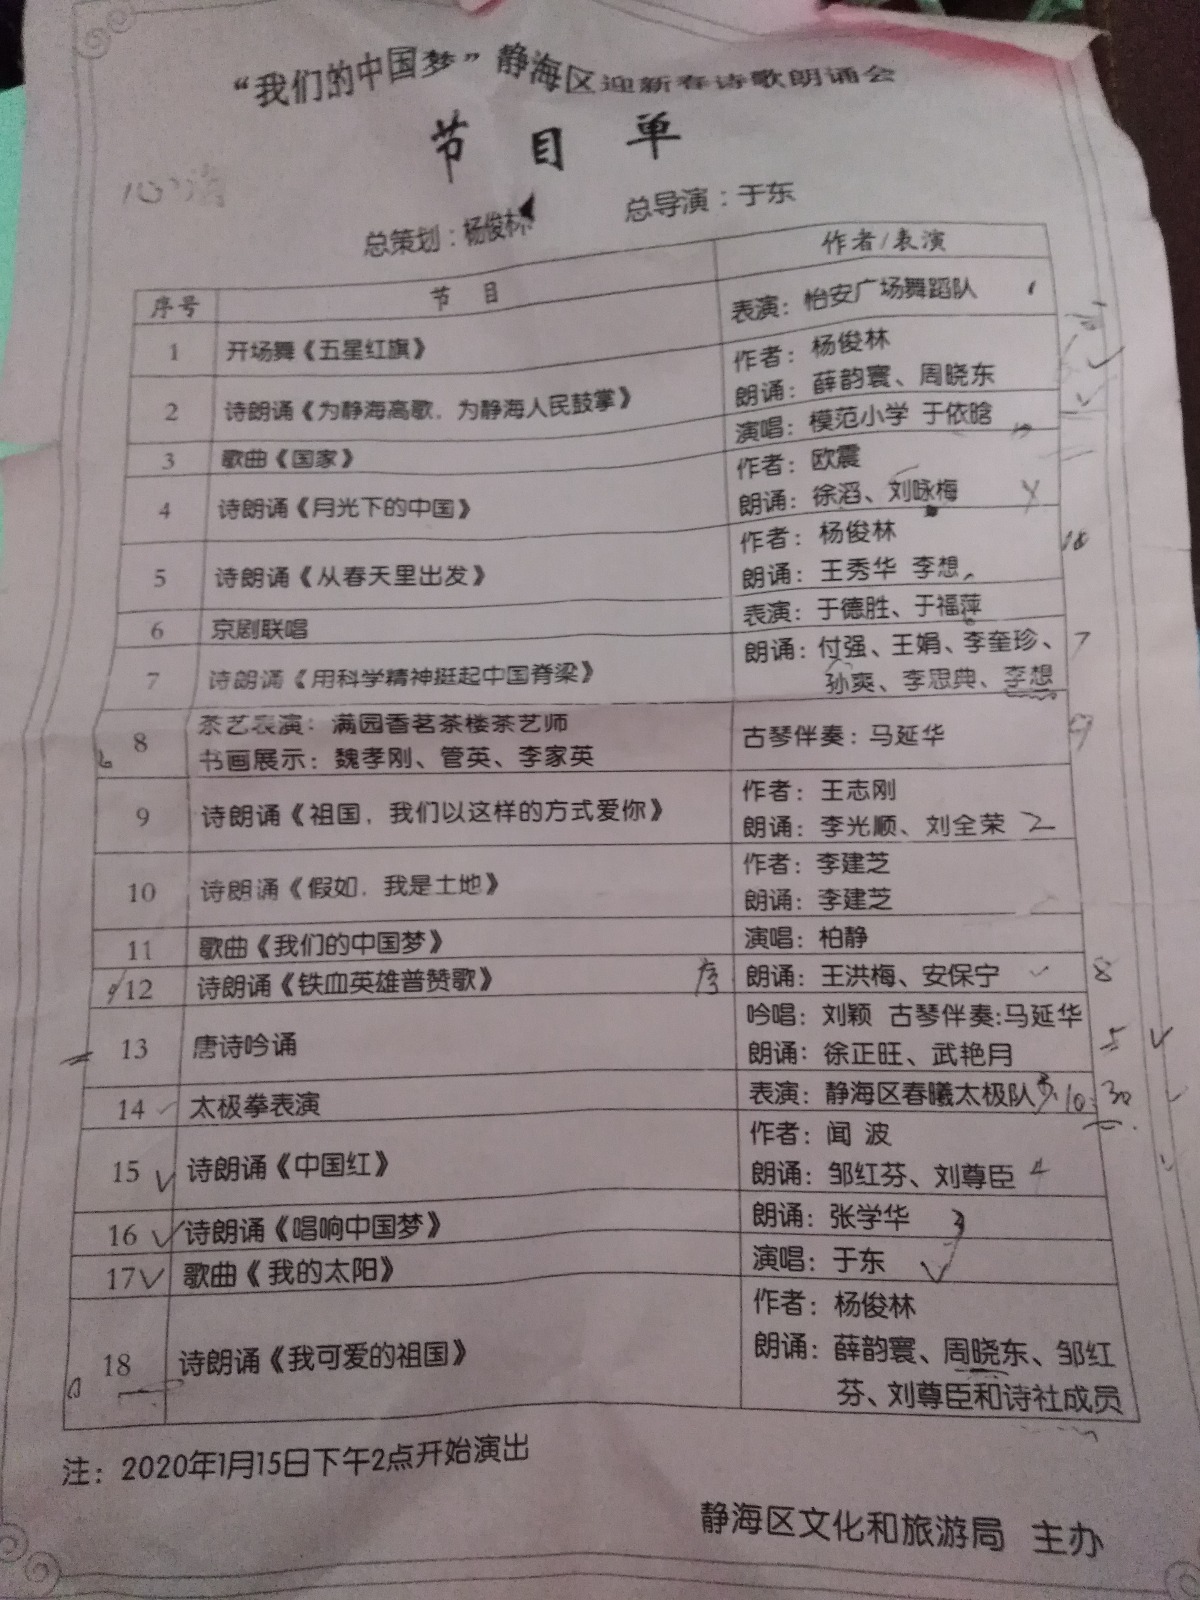 “我们的中国梦”静海区迎新春诗歌朗诵会
节目单
总策划：杨俊林 总导演：于东
序号 节目 作者/表演
1 开场舞《五星红旗》 表演：怡安广场舞蹈队
2 诗朗诵《为静海高歌，为静海人民鼓掌》 作者：杨俊林
朗诵：薛韵寰、周晓东
3 歌曲《国家》 演唱：模范小学 于依晗
4 诗朗诵《月光下的中国》 作者：欧震
朗诵：徐滔、刘咏梅
5 诗朗诵《从春天里出发》 作者：杨俊林
朗诵：王秀华 李想
18
6 京剧联唱 表演：于德胜、于福萍
7 诗朗诵《用科学精神挺起中国脊梁》 朗诵：付强、王娟、李奎珍、 7
孙爽、李思典、李想
8 茶艺表演：满园香茗茶楼茶艺师
书画展示：魏孝刚、管英、李家英 古琴伴奏：马延华 9
9 诗朗诵《祖国，我们以这样的方式爱你》 作者：王志刚
朗诵：李光顺、刘全荣 2
10 诗朗诵《假如，我是土地》 作者：李建芝
朗诵：李建芝
11 歌曲《我们的中国梦》 演唱：柏静
12 诗朗诵《铁血英雄普赞歌》 朗诵：王洪梅、安保宁 8
13 唐诗吟诵 吟唱：刘颖 古琴伴奏:马延华
朗诵：徐正旺、武艳月 5
14 太极拳表演 表演：静海区春曦太极队 10:30
15 诗朗诵《中国红》 作者：闻 波
朗诵：邹红芬、刘尊臣 4
16 诗朗诵《唱响中国梦》 朗诵：张学华 3
17 歌曲《我的太阳》 演唱：于东
18 诗朗诵《我可爱的祖国》 作者：杨俊林
朗诵：薛韵寰、周晓东、邹红
芬、刘尊臣和诗社成员
注：2020年1月15日下午2点开始演出
静海区文化和旅游局 主办